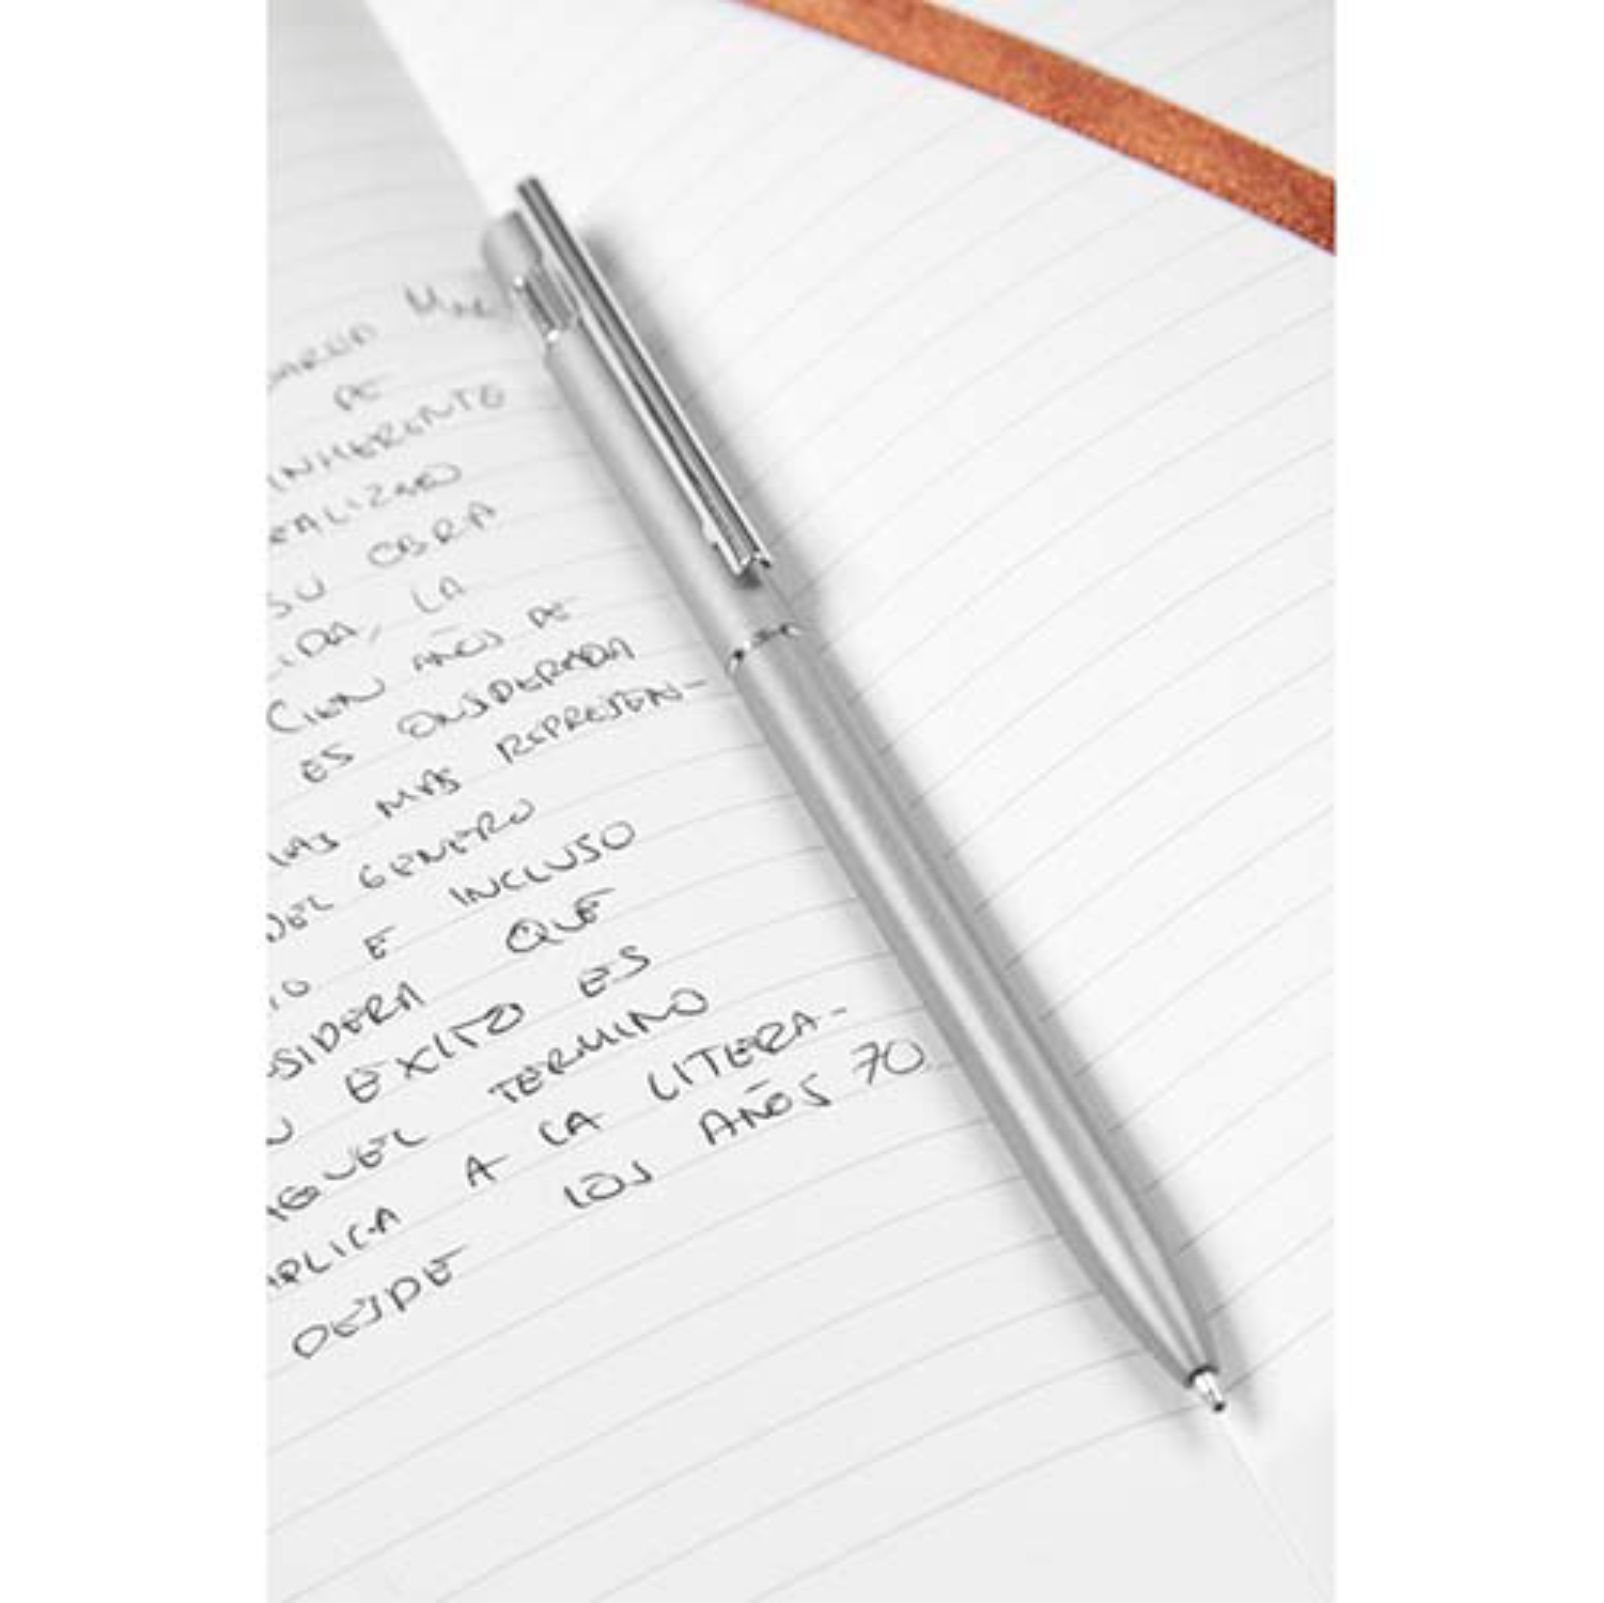 DE
INHERENTE
REALIZADO
SU OBRA
LA
CIEN AÑOS DE
ES CONSIDERADA
LAS MAS REPRESEN-
DEL GENERO
E INCLUSO
SIDERA QUE
EXITO ES
AQUEL TERMINO
APLICA A LA LITERA-
DESDE LOS AÑOS 70